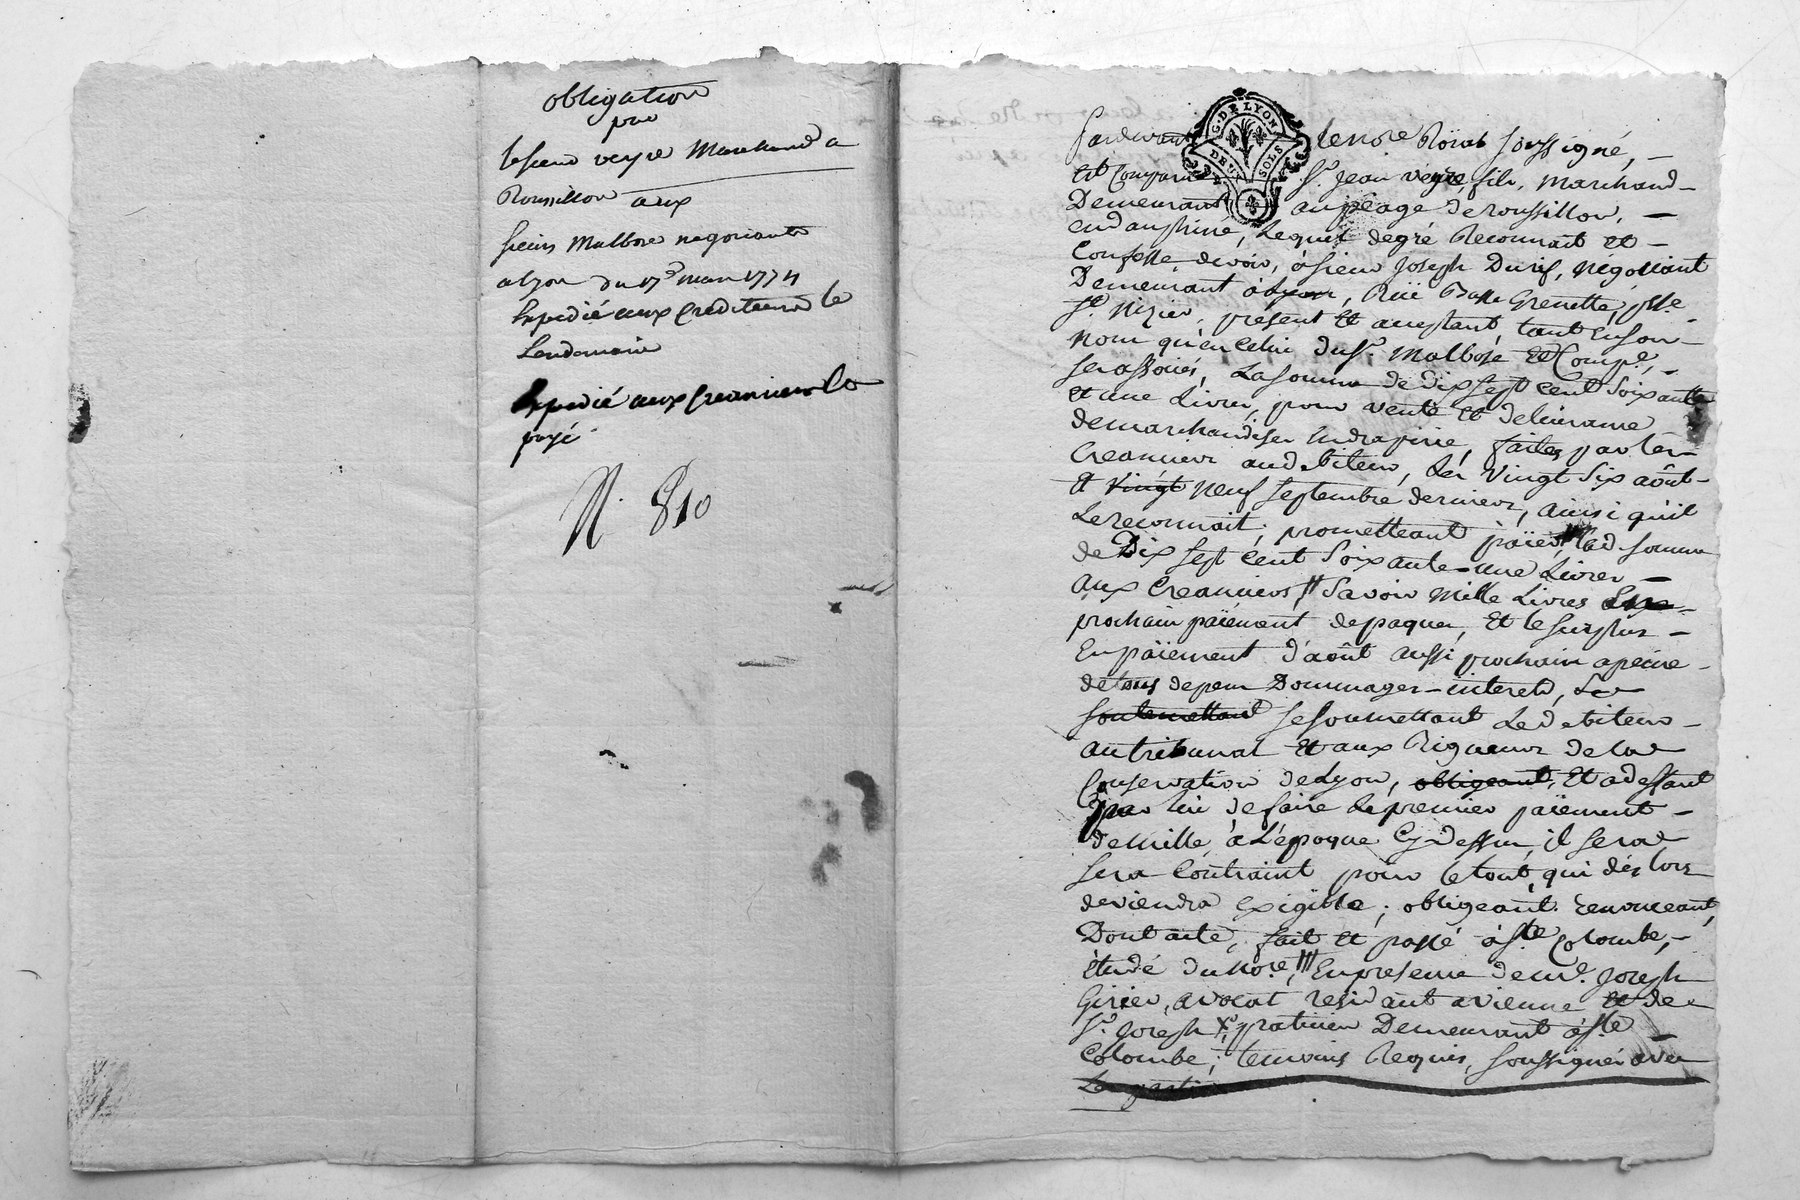 obligation
par
le sieur veyre Marchand a
Roussillon aux
sieurs Malbose negociants
a Lyon du 17e mars 1774
Expedié aux Crediteurs le
Lendemain
Expedié aux Creanciers
payé
N. 810
G. DE LYON
DEUX SOLS
Pardevant le nore Royal soussigné,
Est Comparu Sr. Jean veyre, fils, Marchand
Demeurant au péage de roussillon,
en dauphiné, Lequel de gré Reconnait et
Confesse devoir, à sieur Joseph Durif, négociant
Demeurant à Lyon, Rüe Basse Grenette, psse.
St. Nizier, présent et acceptant, tant en son
nom qu'en Celui du Sr. Malbose et Compe.,
ses associés, La somme de dix sept Cent soixante
et une Livres, pour vente et delivrance
de marchandises En draperie, faites par les
Creanciers au debiteur, les vingt six août
et vingt neuf septembre derniers, ainsi qu'il
Le reconnait; promettant païer lad. somme
de Dix sept Cent soixante-une Livres
aux Creanciers, Savoir Mille Livres
prochain païement de paques, Et le surplus
En païement d'août aussi prochain a peine
de tous depens Dommages-interets, Se
soumettant se soumettant Le debiteur
au tribunal et aux Rigueurs de la
Conservation de Lyon, obligeant, Et a deffaut
par lui de faire le premier païement
de mille, à L'époque Cy dessus, il sera
sera Contraint pour le tout, qui dès lors
deviendra exigible; obligeant. renonceant,
Dont acte, fait et passé à Ste Colombe,
Étude du nore., En presence de me. Joseph
Girier, avocat residant a vienne et de
Sr. Joseph praticien Demeurant à Ste
Colombe; temoins Requis, soussignés avec
Les parties